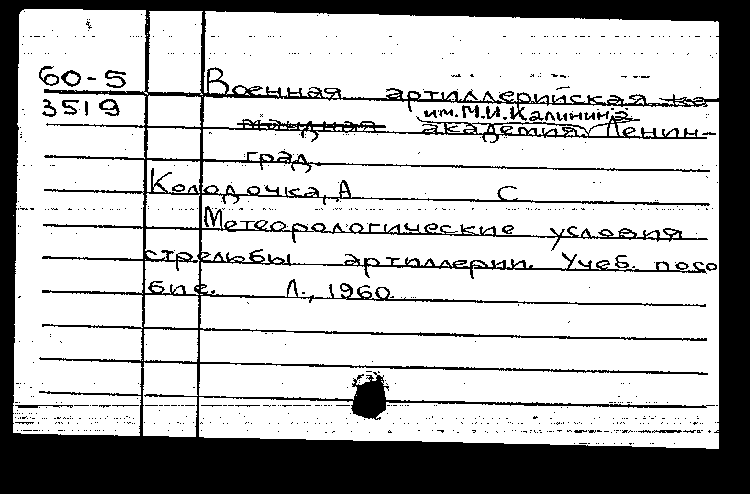 60-5 Военная артиллерийская ко
3519 им. М.И. Калинина
мандная академия. Ленин-
град.
Колодочка, А С
Метеорологические условия
стрельбы артиллерии. Учеб. посо
бие. Л., 1960